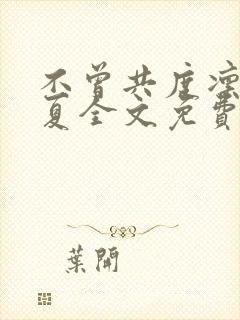 不曾共度凛
夏全文免費
葉開